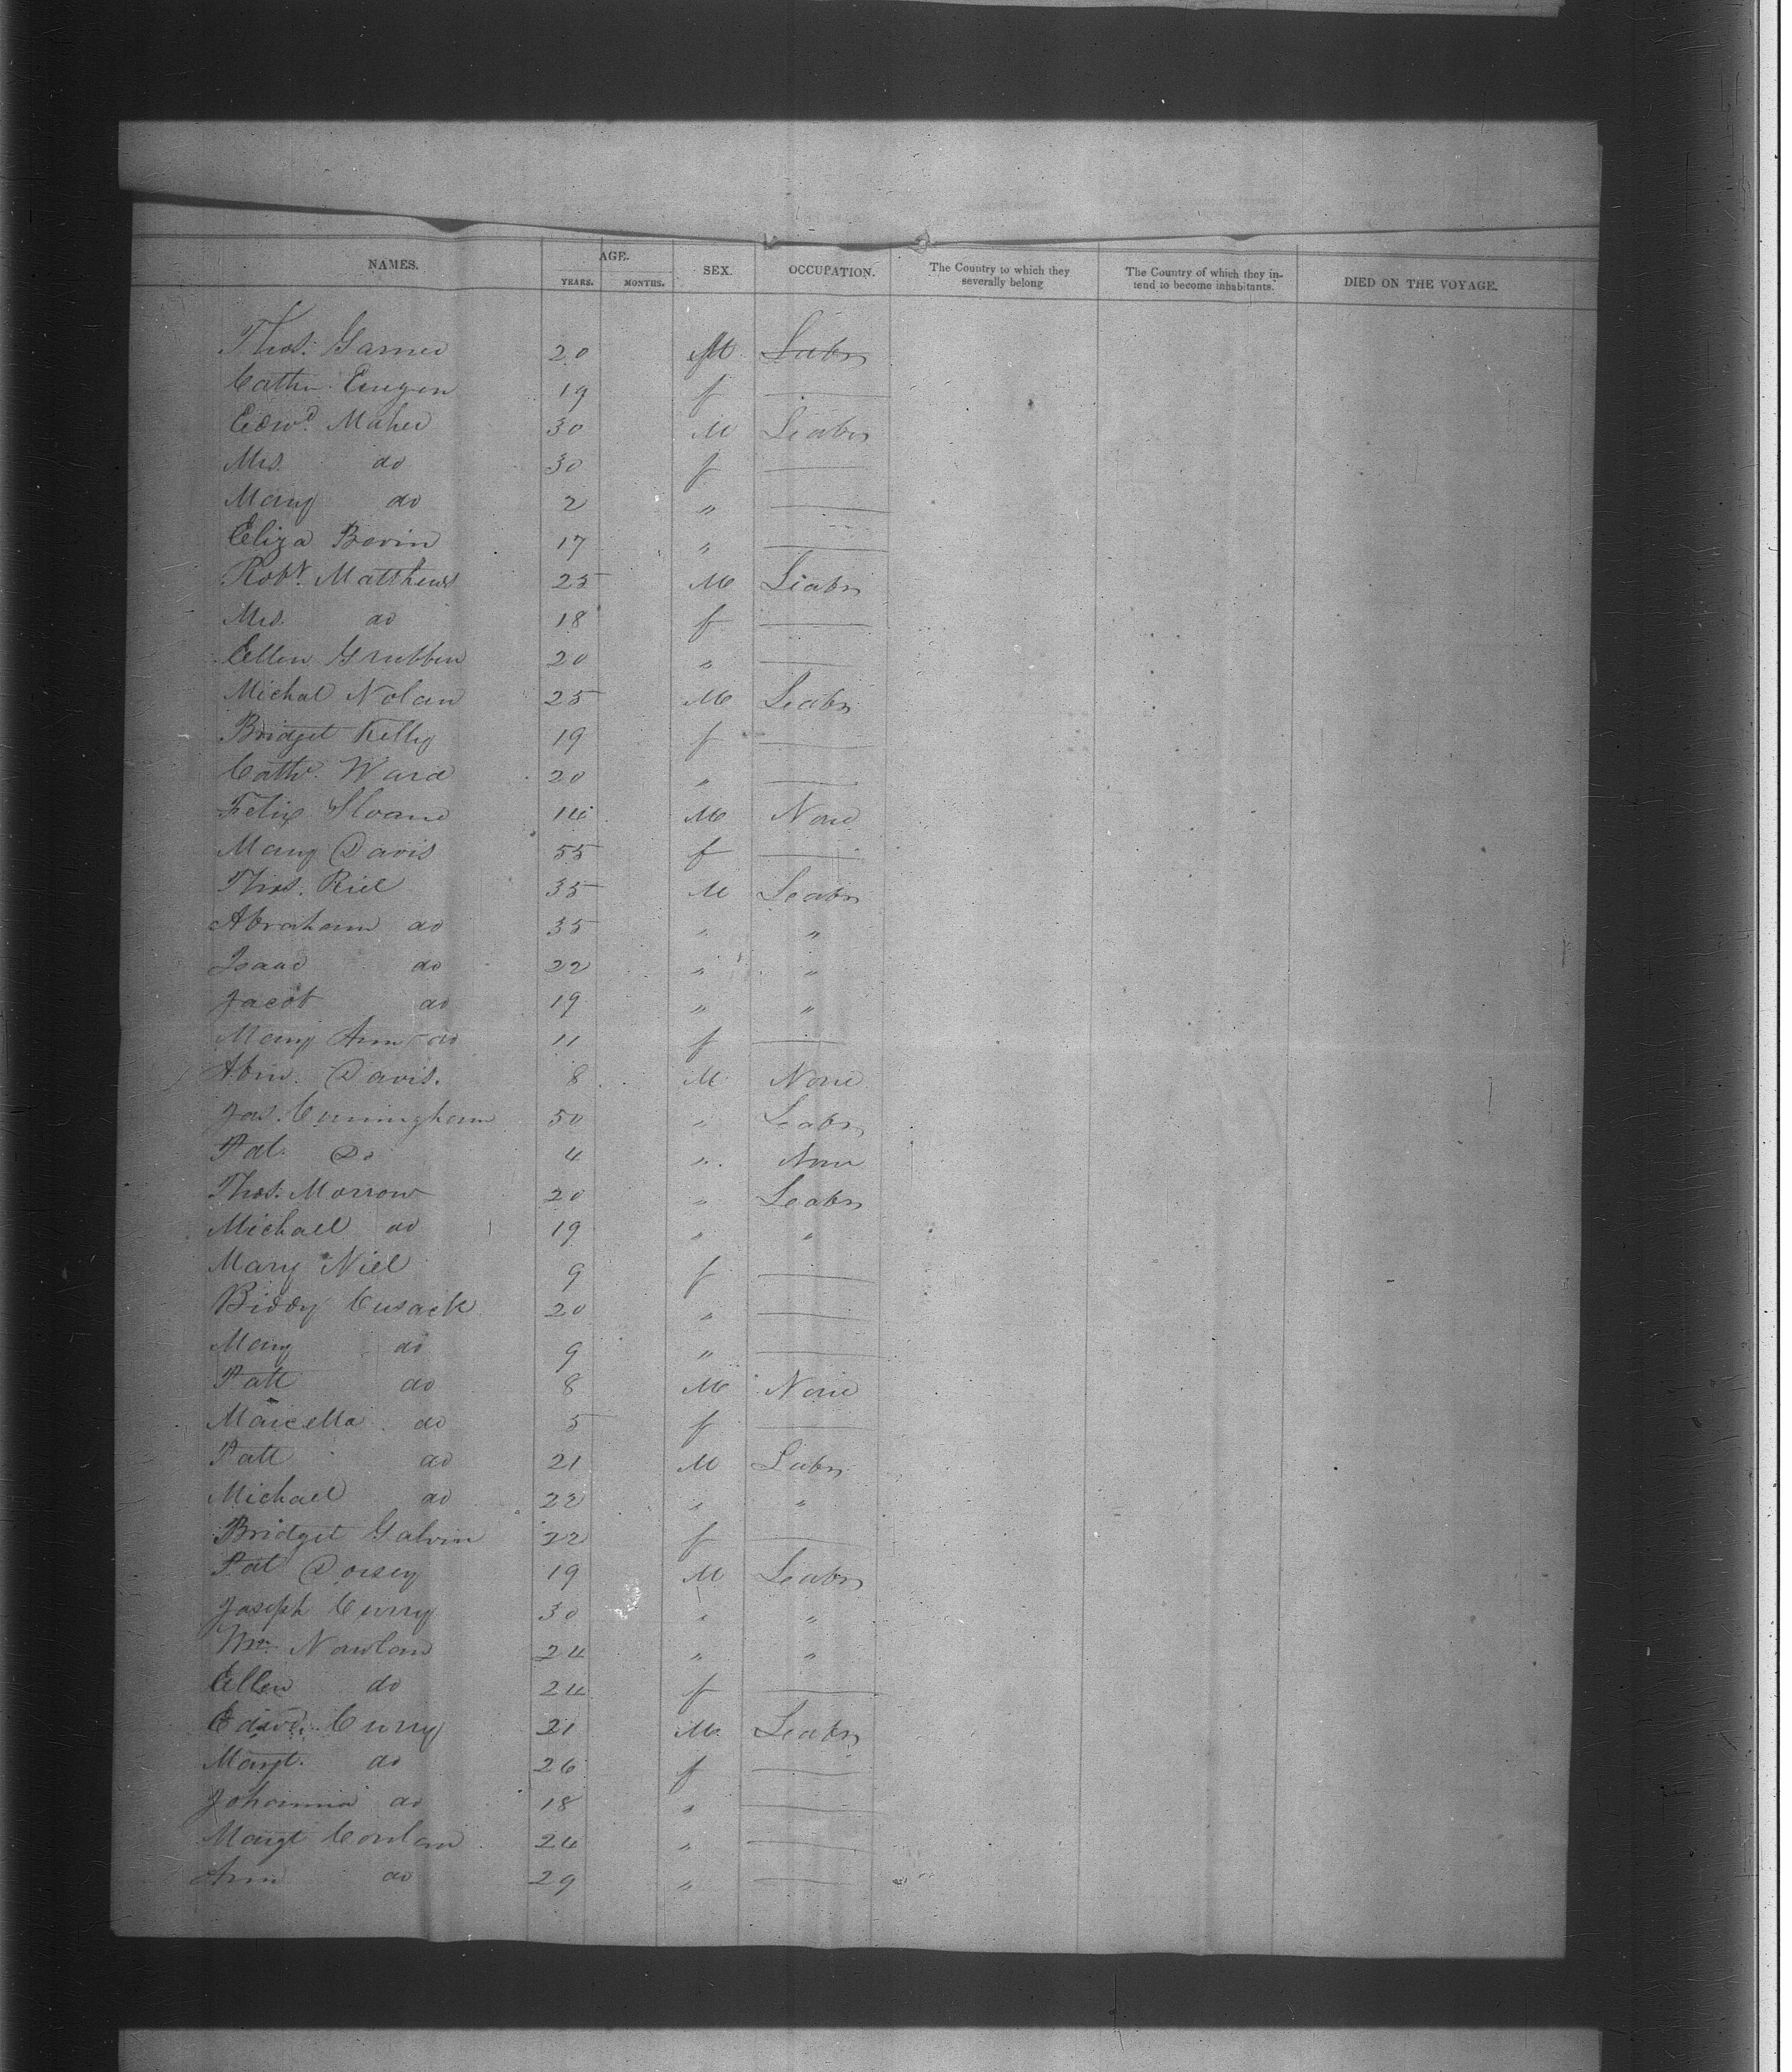 NAMES. AGE. YEARS. MONTHS. SEX. OCCUPATION. The Country to which they severally belong The Country of which they intend to become inhabitants. DIED ON THE VOYAGE.
Thos. Garner 20 M Labr
Cathn. 19 f
Edwd. Maher 30 M Leabr
Mrs. do 30 f
Mary do 2 "
Eliza Bovin 17 "
Robt. Matthews 25 M Leabr
Mrs. do 18 f
Ellen Grubbin 20 "
Michal Nolan 25 M Leabr
Bridget Kelly 19 f
Cathr. Ward 20 "
Felix Sloane 14 M None
Mary Davis 55 f
Thos. Riel 35 M Leabr
Abraham do 35 " "
Isaac do 22 " "
Jacob do 19 " "
Mary Ann do 11 f
Abm. Davis. 8 M None
Jas. Cunningham 50 " Leabr
Pat. Do 4 " None
Thos. Morrow 20 " Leabr
Michael do 19 " "
Mary Niel 9 f
Biddy Cusack 20 "
Mary do 9 "
Patt do 8 M None
Marcella do 5 f
Patt do 21 M Labr
Michael do 22 " "
Bridget Galvin 22 f
Pat Dorsey 19 M Leabr
Joseph Curry 30 " "
Wm. Nowlan 24 " "
Ellen do 24 f
Edwd. Curry 21 M Leabr
Margt. do 26 f
Johanna do 18 "
Margt Conlan 24 "
Ann do 29 "